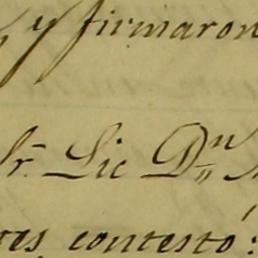 y firmaron
Sr. Lic Dn
tes contestó: